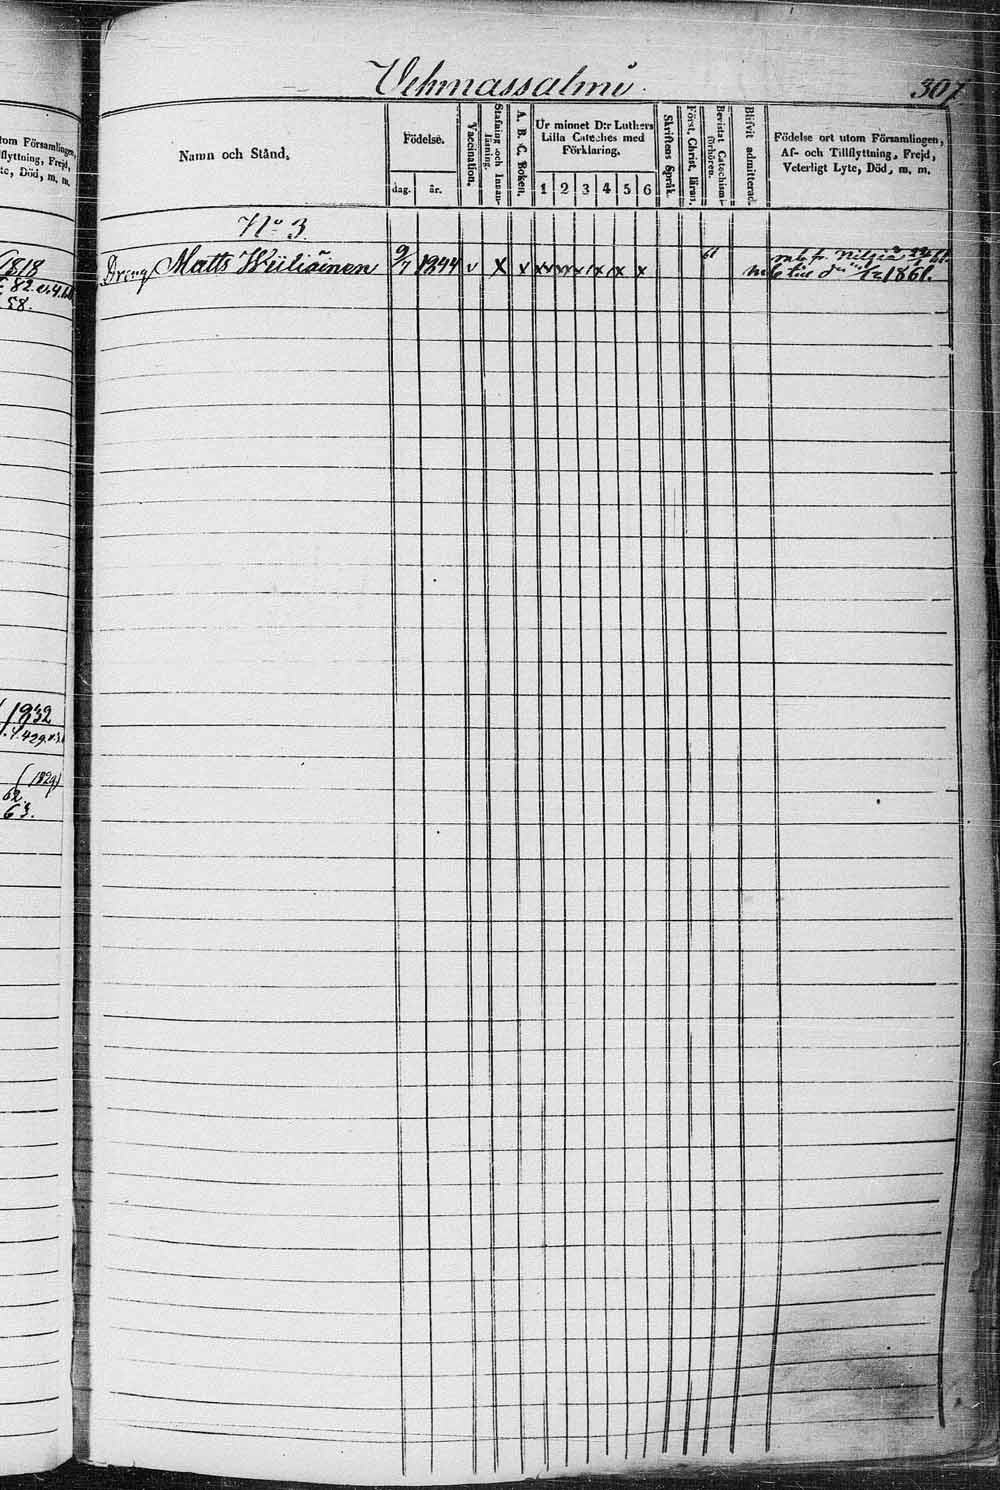 tom Församlingen,
flyttning, Frejd,
te, Död, m. m.
1818
58.
1832
(1829)
62.
63.
Vehmassalmi.
307
Namn och Stånd.
Födelse.
dag.
år.
Vaccination.
Stafning och Innan-
läsning.
A. B. C. Boken.
Ur minnet D:r Luthers
Lilla Cateches med
Förklaring.
1 2 3 4 5 6
Skriftens Språk.
Först. Christ. läran.
Bevistat Catechismi-
förhören.
Blifvit admitterad.
Födelse ort utom Församlingen,
Af- och Tillflyttning, Frejd,
Veterligt Lyte, Död, m. m.
No 3.
Dreng Matts Wiiliäinen 9/7 1844 v x x xx xx x x x x 61 mb fr. Nilsiä
mb till 1861.